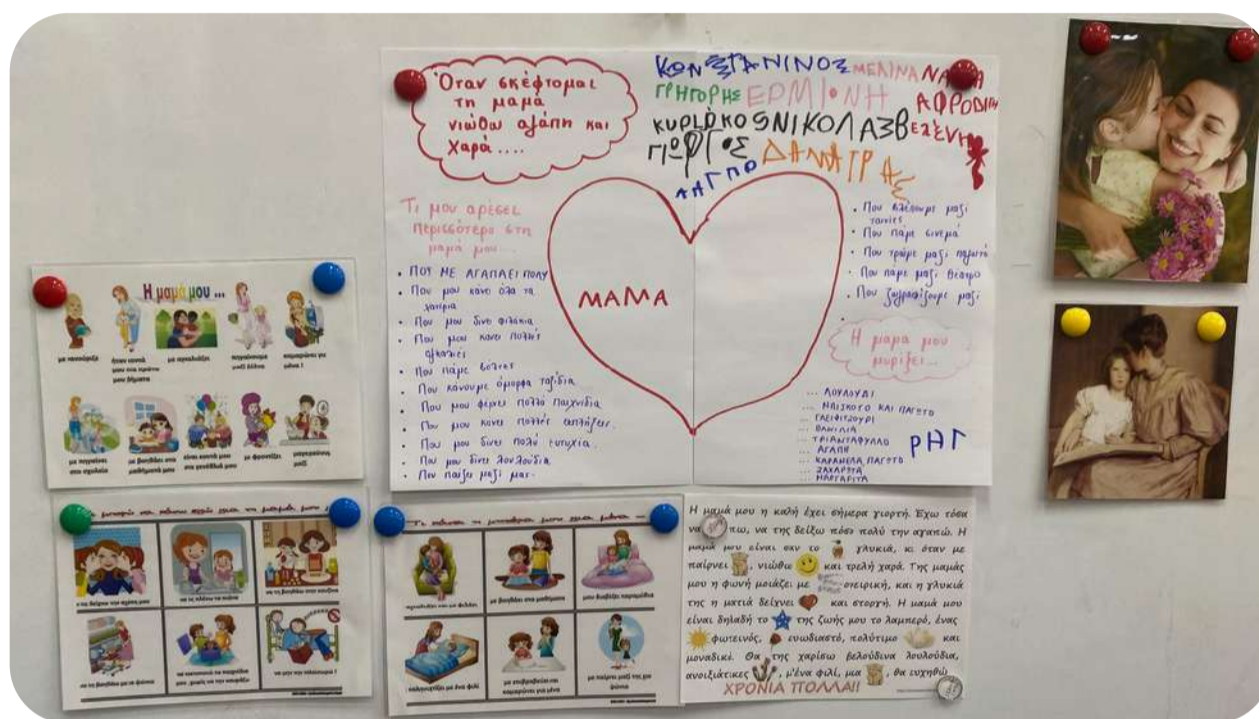 Όταν σκέφτομαι
τη μαμά
νιώθω αγάπη και
χαρά....
ΚΩΝΣΤΑΝΙΝΟΣ ΜΕΛΙΝΑ
ΓΡΗΓΟΡΗΣ ΕΡΜΙΟΝΗ ΑΦΡΟΔΙΤΗ
ΓΙΩΡΓΟΣ
Τι μου αρέσει
περισσότερο στη
μαμά μου...
• ΠΟΥ ΜΕ ΑΓΑΠΑΕΙ ΠΟΛΥ
• Που μου κάνει όλα τα
χατίρια
• Που μου δίνει φιλάκια
• Που μου κάνει πολλές
αγκαλιές
• Που πάμε βόλτες
• Που κάνουμε όμορφα ταξίδια
• Που μου φέρνει πολλά παιχνίδια
• Που μου κάνει πολλές εκπλήξεις.
• Που μου δίνει πολύ ευτυχία.
• Που μου δίνει λουλούδια
• Που παίζει μαζί μας.
ΜΑΜΑ
• Που βλέπουμε μαζί
ταινίες
• Που πάμε σινεμά
• Που τρώμε μαζί παγωτό
• Που πάμε μαζί θέατρο
• Που ζωγραφίζουμε μαζί
Η μαμά μου
μυρίζει...
... ΛΟΥΛΟΥΔΙ
... ΜΠΙΣΚΟΤΟ ΚΑΙ ΠΑΓΩΤΟ
... ΓΛΕΙΦΙΤΖΟΥΡΙ
... ΒΑΝΙΛΙΑ
... ΤΡΙΑΝΤΑΦΥΛΛΟ
... ΑΓΑΠΗ
... ΚΑΡΑΜΕΛΑ ΠΑΓΩΤΟ
... ΖΑΧΑΡΩΤΑ
... ΜΑΡΓΑΡΙΤΑ
ΡΗΓ
Η μαμά μου ...
με νανούριζε
ήταν κοντά
μου στα πρώτα
μου βήματα
με αγκαλιάζει
πηγαίνουμε
μαζί βόλτα
καμαρώνει για
μένα !
με πηγαίνει
στο σχολείο
με βοηθάει στα
μαθήματά μου
είναι κοντά μου
στα γενέθλιά μου
με φροντίζει
μαγειρεύουμε
μαζί
να τη βοηθάω στην κουζίνα
να τη βοηθάω με τα ψώνια
με βοηθάει στα μαθήματα
μου διαβάζει παραμύθια
καληνυχτίζει με ένα φιλί
με επιβραβεύει και
καμαρώνει για μένα
με παίρνει μαζί της για
ψώνια
Η μαμά μου η καλή έχει σήμερα γιορτή. Έχω τόσα
να πω, να της δείξω πόσο πολύ την αγαπώ. Η
μαμά μου είναι σαν το γλυκιά, κι όταν με
παίρνει , νιώθω και τρελή χαρά. Της μαμάς
μου η φωνή μοιάζει με ονειρική, και η γλυκιά
της η ματιά δείχνει και στοργή. Η μαμά μου
είναι δηλαδή το της ζωής μου το λαμπερό, ένας
φωτεινός, ευωδιαστό, πολύτιμο και
μοναδικό. Θα της χαρίσω βελούδινα λουλούδια,
ανοιξιάτικες , μ'ένα φιλί, μια , θα ευχηθώ
ΧΡΟΝΙΑ ΠΟΛΛΑ!!